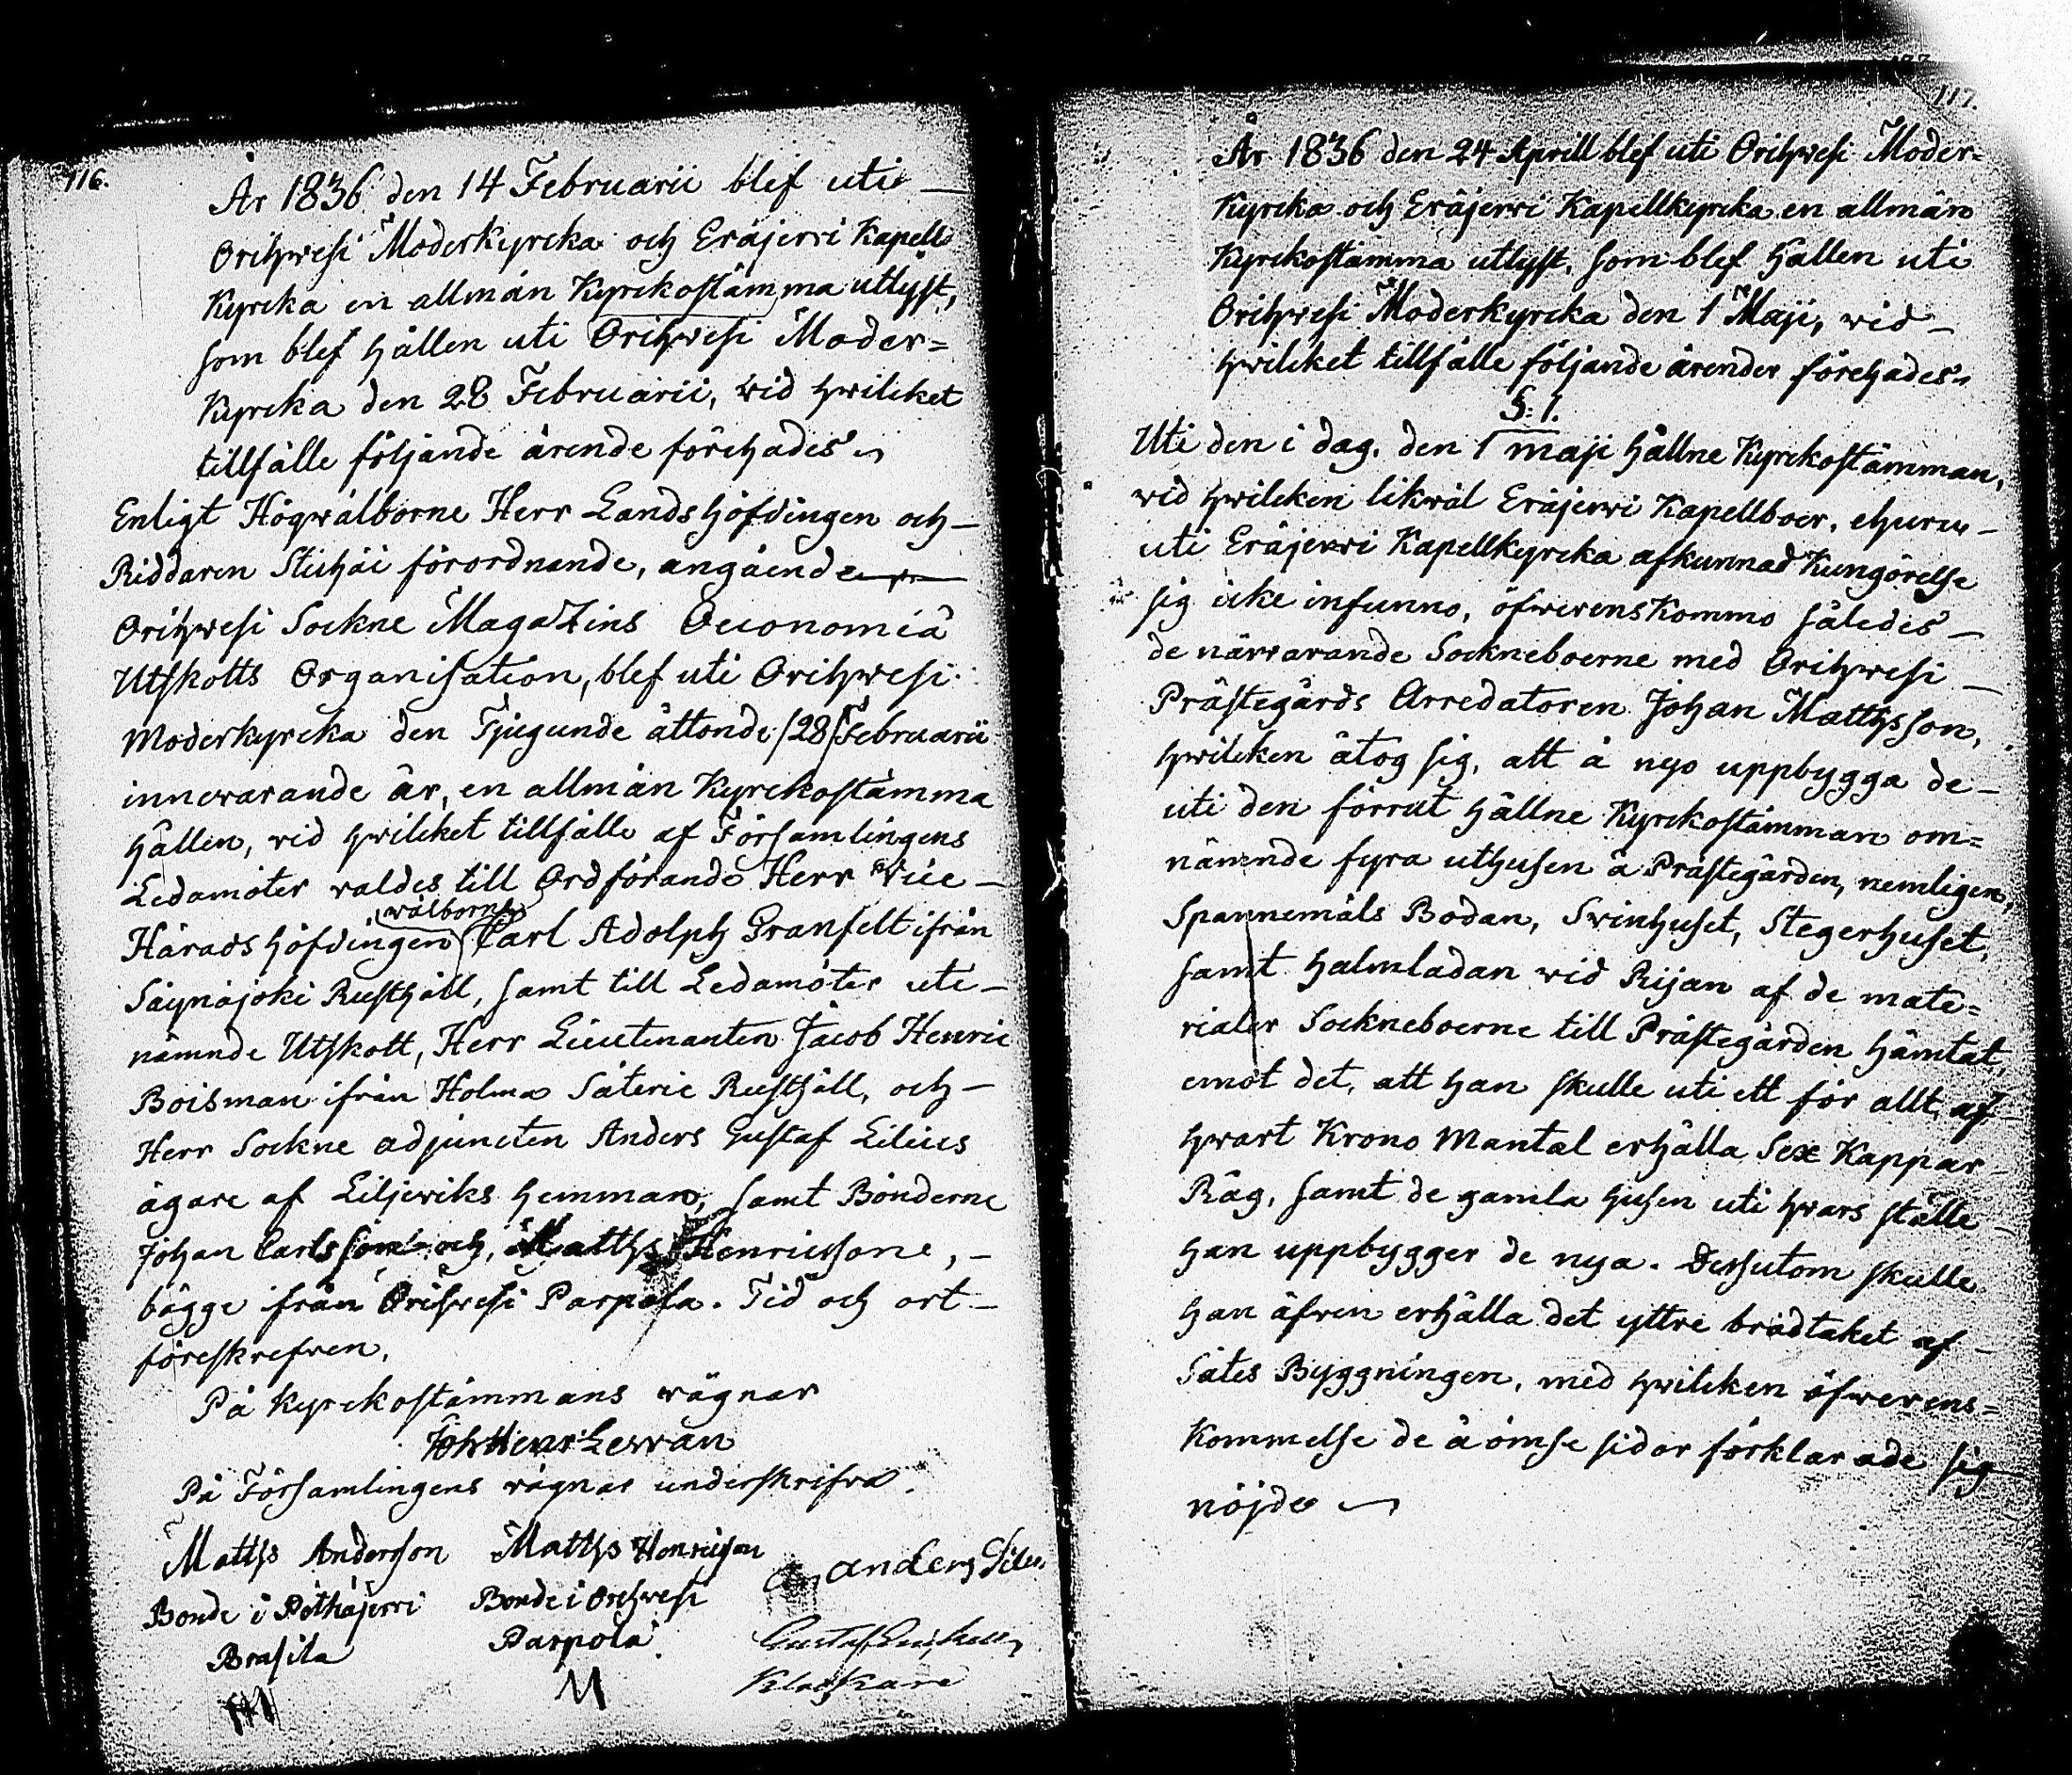 116.
År 1836 den 14 Februarii blef uti —
Orihwesi Moderkyrcka och Eräjervi Kapell
Kyrcka en allmän Kyrckostämma utlyst,
som blef hållen uti Orihwesi Moder=
Kyrcka den 28 Februarii, vid hwilcket
tillfälle följande ärende förehades
Enligt Högwälborne Herr Landshöfdingen och —
Riddaren förordnande, angående
Orihwesi Sockne Magazins Oeconomiä
Utskotts Organisation, blef uti Orihwesi
Moderkyrcka den Tjugunde åttonde /28/ Februarii
innevarande år, en allmän Kyrckostämma
hållen, vid hwilcket tillfälle af Församlingens
Ledamöter valdes till Ordförande Herr Vice —
wälborne
Häradshöfdingen Carl Adolph Granfelt ifrån
Säynäjoki Rusthåll, samt till Ledamöter uti —
nämnde Utskott, Herr Lieutenanten Jacob Henric
Boisman ifrån Holma Säterie Rusthåll, och —
Herr Sockne adjuncten Anders Gustaf Lilius
ägare af Liljeviks hemman, samt Bönderne
Johan Carlsson och, Matths Henricssone, —
bägge ifrån Orihwesi Parpola. Tid och ort —
föreskrefven.
På Kyrckostämmans vägnar
Joh Henr Levvan
På Församlingens vägnar underskrifva.
Matths Andersson Matths Henricson anders
Bonde i Pöthäjervi Bonde i Orihwesi
Brasila Parpola Gustaf
M Klockare
117.
År 1836 den 24 Aprill blef uti Orihwesi Moder=
Kyrcka och Eräjervi Kapellkyrcka en allmän
Kyrckostämma utlyst, som blef hållen uti
Orihwesi Moderkyrcka den 1 Maji, vid —
hwilcket tillfälle följande ärender förehades
§: 1.
Uti den i dag, den 1 maji hållne Kyrckostämman,
vid hwilcken likväl Eräjervi Kapellboer, ehuru —
uti Eräjervi Kapellkyrcka afkunnad Kungörelse
sig icke infunno, öfwerenskommo således —
de närvarande Sockneboerne med Orihwesi —
Prästegårds Arredatoren Johan Matthsson,
hwilcken åtog sig, att å nyo uppbygga de —
uti den förrut hållne Kyrckostämman om=
nämnde fyra uthusen å Prästegården, nemligen,
Spannemåls Bodan, Svinhuset, Stegerhuset,
samt halmladan vid Rijan af de mate=
rialer Sockneboerne till Prästegården hämtat,
emot det, att han skulle uti ett för allt, af
hwart Krono Mantal erhålla Sex Kappar
Råg, samt de gamla husen uti hvars ställe
han uppbygger de nya. Dessutom skulle
han äfven erhålla det yttre brädtaket af —
Sätes Byggningen, med hwilcken öfwerens=
kommelse de å ömse sidor förklarade sig
nöjde